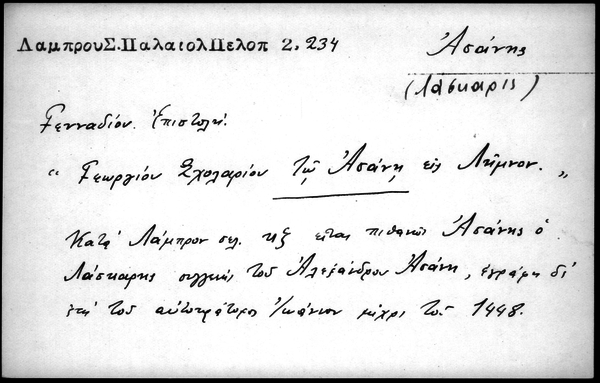 ΛαμπρουΣ.ΠαλαιολΠελοπ 2,234
Ἀσάνης
(Λάσκαρις)
Γενναδίου. Ἐπιστολή.
" Γεωργίου Σχολαρίου τῷ Ἀσάνῃ εἰς Λῆμνον. "
Κατά Λάμπρον σελ. κξ εἶναι πιθανῶς Ἀσάνης ὁ
Λάσκαρης συγγενής τοῦ Ἀλεξάνδρου Ἀσάνη, ἐγράφη δέ
ἐπί τοῦ αὐτοκράτορος Ἰωάννου μέχρι τοῦ 1448.